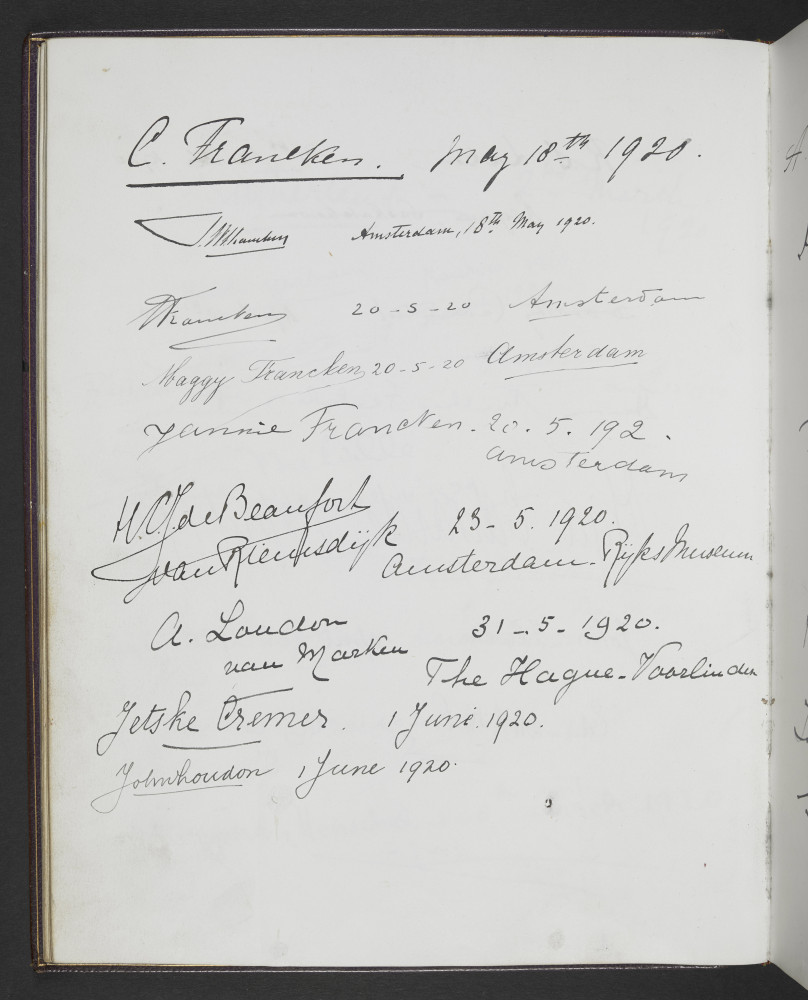 C. Francken. May 18th 1920.
Amsterdam, 18th May 1920.
Francken 20-5-20 Amsterdam
Maggy Francken 20-5-20 Amsterdam
Jannie Francken. 20. 5. 192.
Amsterdam
H.C.J. de Beaufort
van Riemsdijk 23-5. 1920.
Amsterdam. Rijks Museum
A. Loudon
van Marken 31-5-1920.
The Hague-Voorlinden
Jetske Cremer. 1 June. 1920.
John Loudon 1 June 1920.